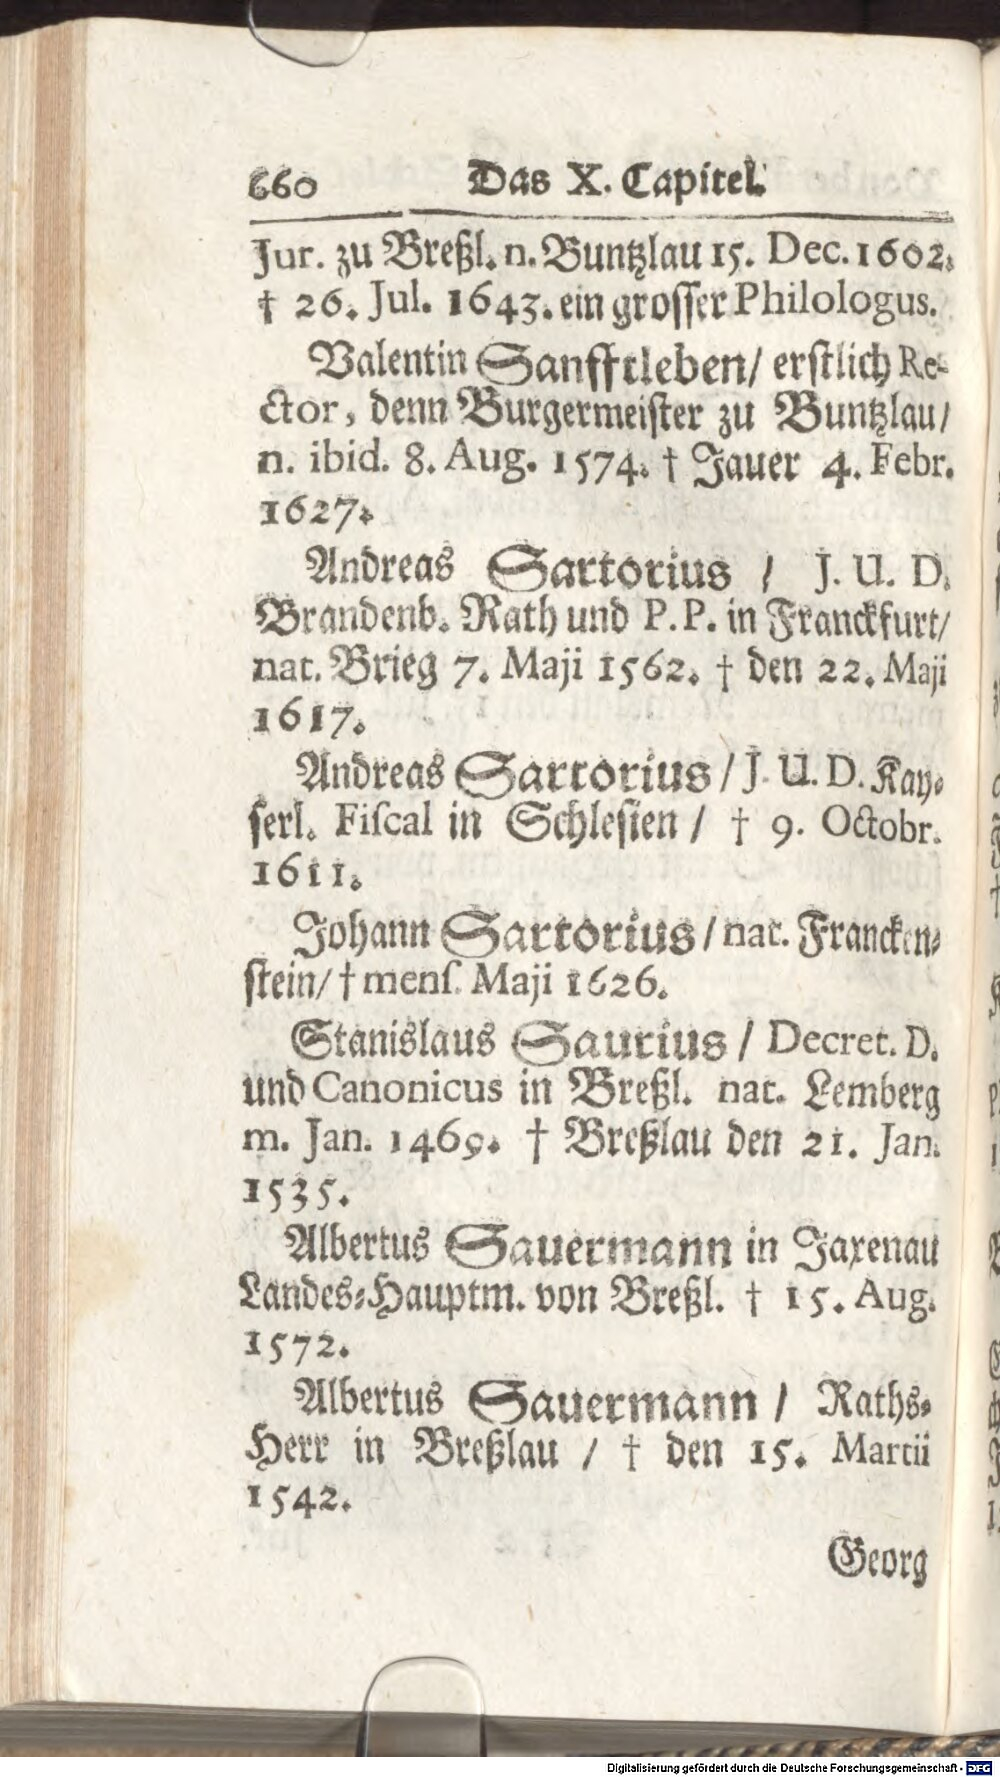 660 Das X. Capitel.
Jur. zu Breßl. n. Buntzlau 15. Dec. 1602.
† 26. Jul. 1643. ein grosser Philologus.
Valentin Sanfftleben/ erstlich Re-
ctor, denn Burgermeister zu Buntzlau/
n. ibid. 8. Aug. 1574. † Jauer 4. Febr.
1627.
Andreas Sartorius / J. U. D.
Brandenb. Rath und P. P. in Franckfurt/
nat. Brieg 7. Maji 1562. † den 22. Maji
1617.
Andreas Sartorius / J. U. D. Kay-
serl. Fiscal in Schlesien / † 9. Octobr.
1611.
Johann Sartorius / nat. Francken-
stein/ † mens. Maji 1626.
Stanislaus Saurius / Decret. D.
und Canonicus in Breßl. nat. Lemberg
m. Jan. 1469. † Breßlau den 21. Jan.
1535.
Albertus Sauermann in Jaxenau
Landes-Hauptm. von Breßl. † 15. Aug.
1572.
Albertus Sauermann / Raths-
Herr in Breßlau / † den 15. Martii
1542.
Georg
Digitalisierung gefördert durch die Deutsche Forschungsgemeinschaft - DFG